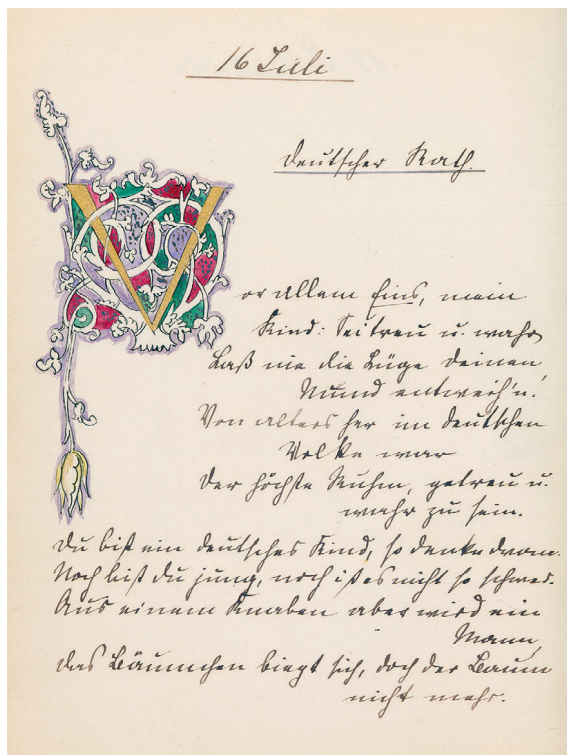 16 Juli
Deutscher Rath.
Vor allem Eins, mein
Kind: Sei treu u. wahr,
Laß nie die Lüge deinen
Mund entweih'n!
Von alters her im deutschen
Volke war
Der höchste Ruhm, getreu u.
wahr zu sein.
Du bist ein deutsches Kind, so denke dran.
Noch bist du jung, noch ist es nicht so schwer.
Aus einem Knaben aber wird ein
Mann,
Das Bäumchen biegt sich, doch der Baum
nicht mehr.